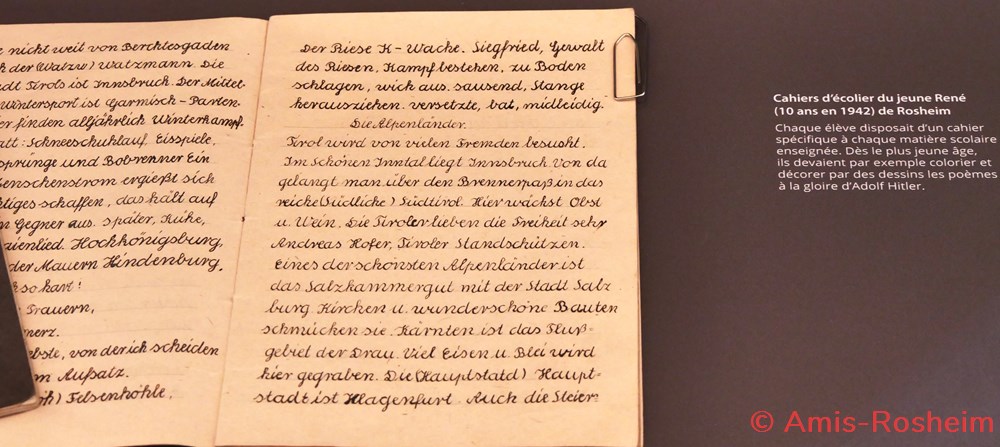 e nicht weit von Berchtesgaden
h der (Watzw) Watzmann. Die
adt Tirols ist Innsbruck. Der Mittel-
Wintersport ist Garmisch-Parten-
er finden alljährlich Winterkampf-
att: Schneeschuhlauf, Eisspiele,
springe und Bobrenner Ein
enschenstrom ergießt sich
ktiges schaffen, das hält auf
n Gegner aus. später, Ruhe,
aienlied. Hochkönigsburg,
der Mauern Hindenburg,
kso hart!
Trauern,
merz.
ebste, von der ich scheiden
m Aufsatz.
öh) Felsenhöhle,
Der Riese H-Wache. Siegfried, Gewalt
des Riesen, Kampf bestehen, zu Boden
schlagen, wich aus. sausend, Stange
herausziehen. versetzte, bat, midleidig.
Die Alpenländer.
Tirol wird von vielen Fremden besuht.
Im Schönen Inntal liegt Innsbruck von da
gelangt man über den Brennerpaß in das
reiche (Südliche) Südtirol. Hier wächst Obst
u. Wein. Die Tiroler lieben die Freiheit sehr
Andreas Hofer, Tiroler Standschützen.
Eines der schönsten Alpenländer ist
das Salzkammergut mit der Stadt Salz
burg Kirchen u. wunderschöne Bauten
schmücken sie. Kärnten ist das Fluß-
gebiet der Drau. Viel Eisen u. Blei wird
hier gegraben. Die (Hauptstatd) Haupt-
stadt ist Klagenfurt. Auch die Steier-
Cahiers d'écolier du jeune René
(10 ans en 1942) de Rosheim
Chaque élève disposait d'un cahier
spécifique à chaque matière scolaire
enseignée. Dès le plus jeune âge,
ils devaient par exemple colorier et
décorer par des dessins les poèmes
à la gloire d'Adolf Hitler.
© Amis-Rosheim